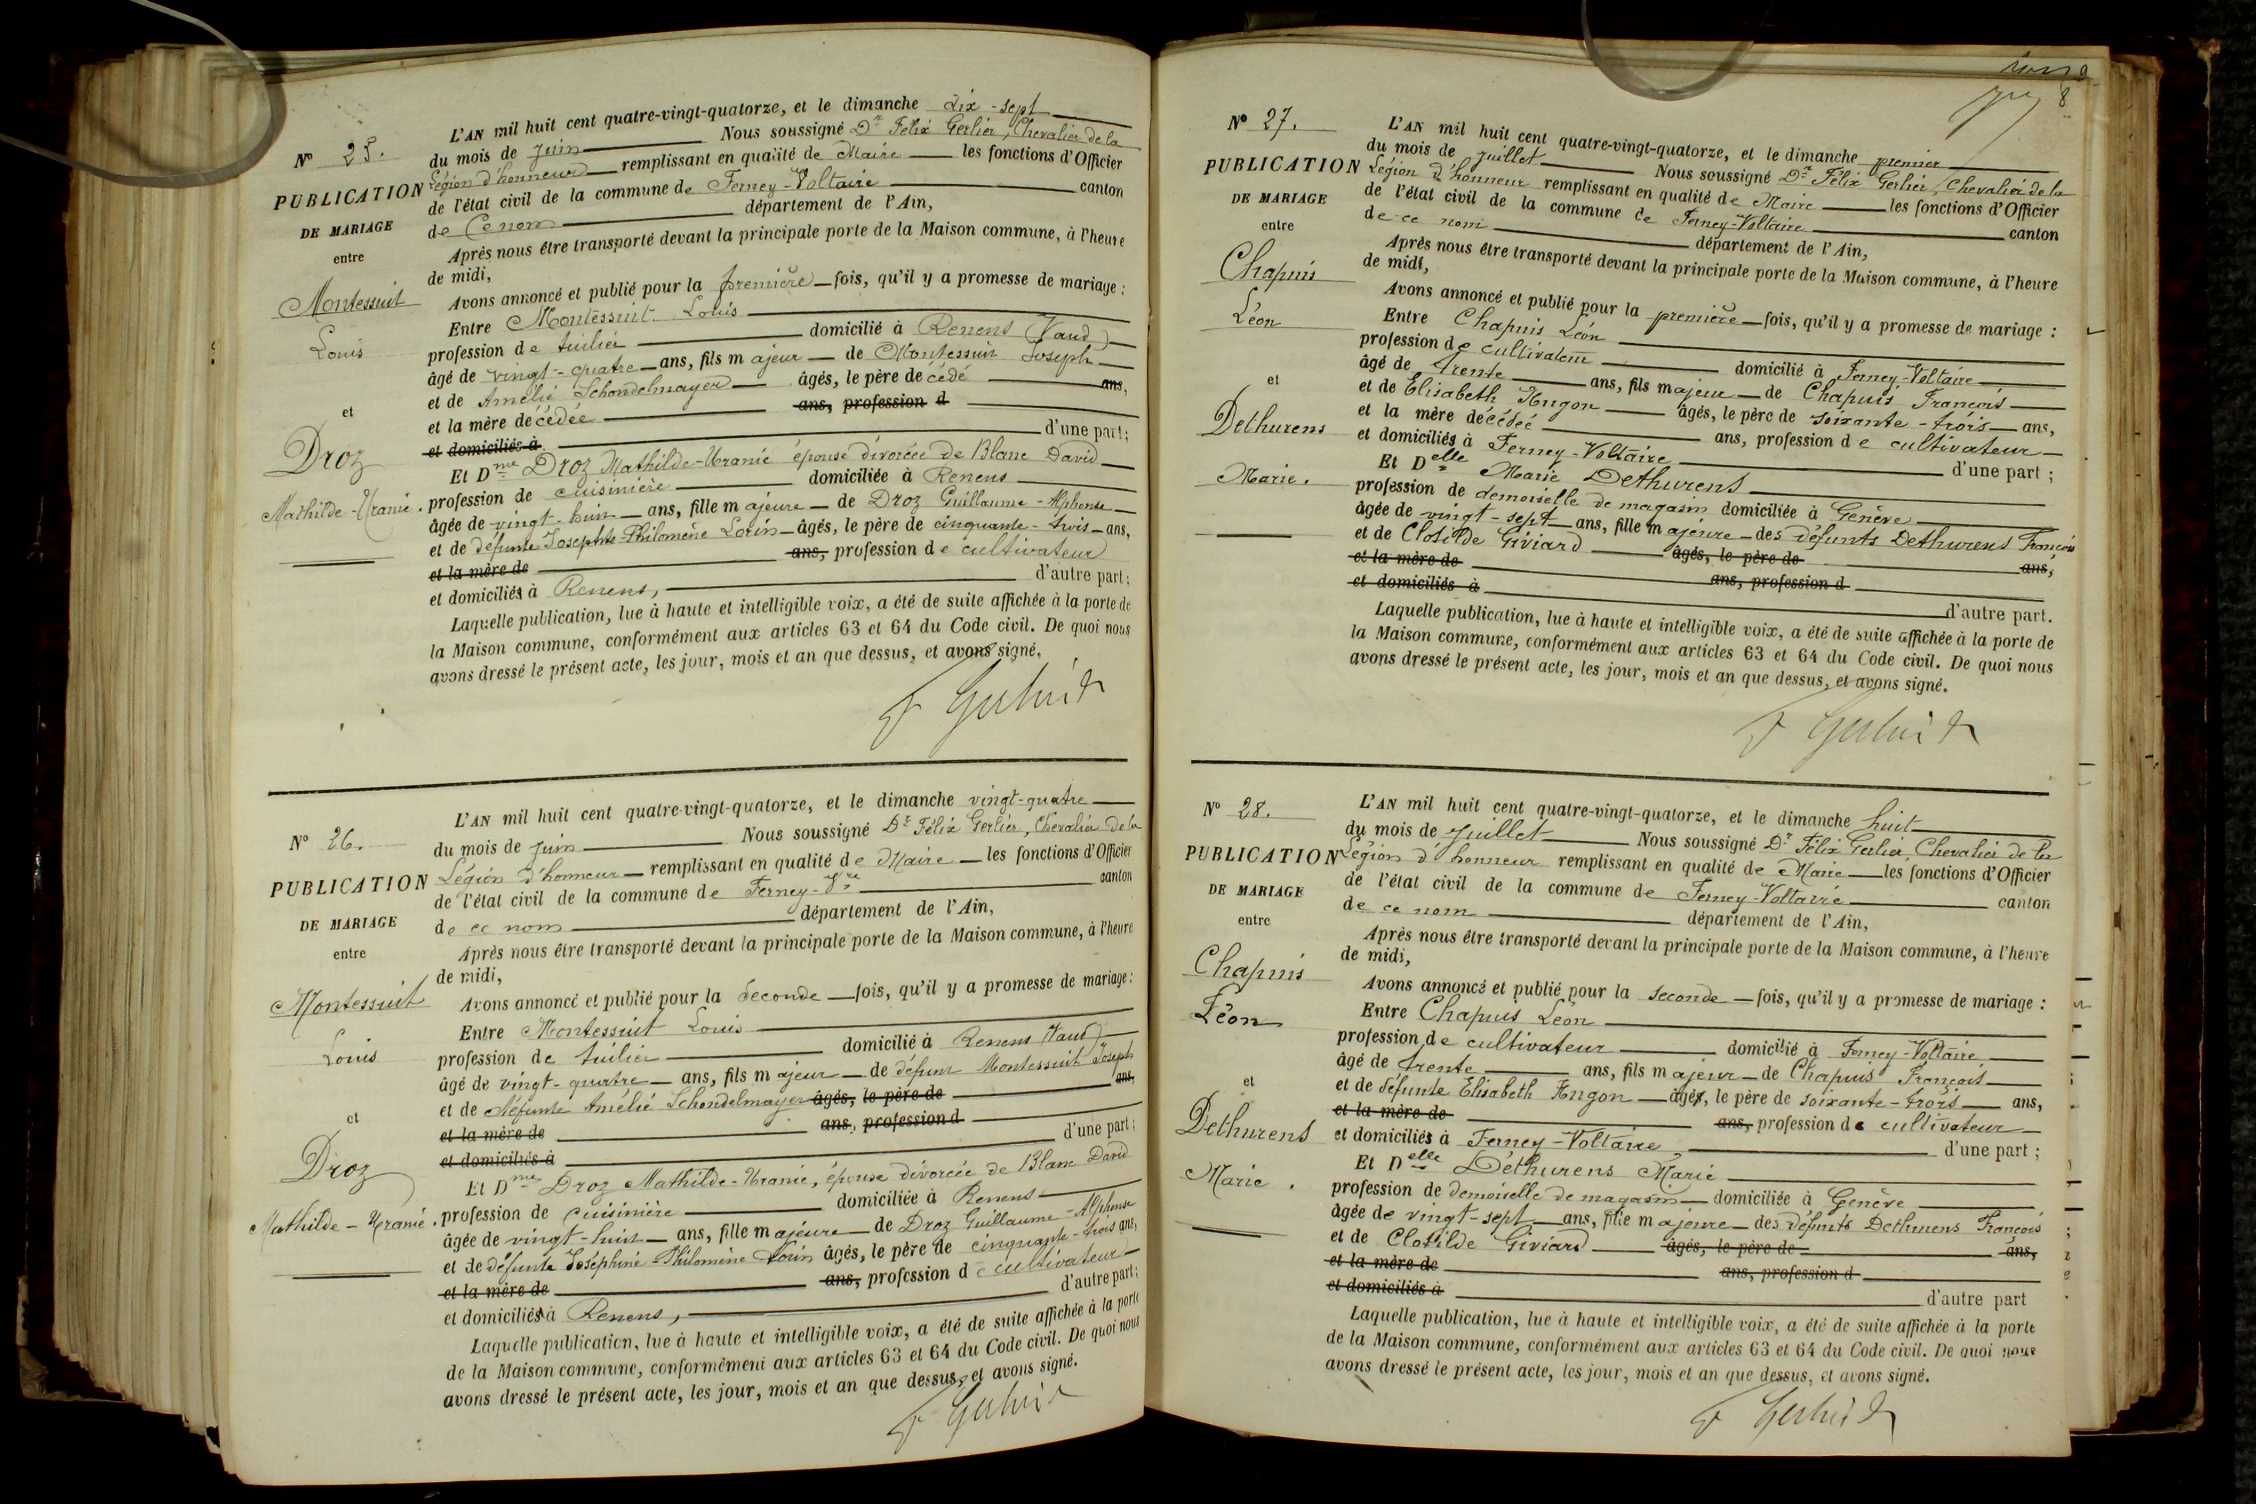 Nº 25.
PUBLICATION
DE MARIAGE
entre
Montessuit
Louis
et
Droz
Mathilde-Uranie.
L'AN mil huit cent quatre-vingt-quatorze, et le dimanche dix-sept
du mois de juin Nous soussigné Dr Félix Gerlier, Chevalier de la
Légion d'honneur remplissant en qualité de Maire les fonctions d'Officier
de l'état civil de la commune de Ferney-Voltaire canton
de Ce nom département de l'Ain,
Après nous être transporté devant la principale porte de la Maison commune, à l'heure
de midi,
Avons annoncé et publié pour la première fois, qu'il y a promesse de mariage :
Entre Montessuit Louis
profession de tuilier domicilié à Renens (Vaud)
âgé de vingt-quatre ans, fils majeur de Montessuit Joseph
et de Amélie Schondelmayer âgés, le père décédé ans,
et la mère décédée ans, profession d
et domiciliés à d'une part;
Et Dme Droz Mathilde-Uranie épouse divorcée de Blanc David
profession de cuisinière domiciliée à Renens
âgée de vingt-huit ans, fille majeure de Droz Guillaume-Alphonse
et de défunte Josephte-Philomène Louin âgés, le père de cinquante-trois ans,
et la mère de ans, profession de cultivateur
et domiciliés à Renens, d'autre part;
Laquelle publication, lue à haute et intelligible voix, a été de suite affichée à la porte de
la Maison commune, conformément aux articles 63 et 64 du Code civil. De quoi nous
avons dressé le présent acte, les jour, mois et an que dessus, et avons signé.
F Gerlier
Nº 26.
PUBLICATION
DE MARIAGE
entre
Montessuit
Louis
et
Droz
Mathilde-Uranie.
L'AN mil huit cent quatre-vingt-quatorze, et le dimanche vingt-quatre
du mois de juin Nous soussigné Dr Félix Gerlier, Chevalier de la
Légion d'honneur remplissant en qualité de Maire les fonctions d'Officier
de l'état civil de la commune de Ferney-Vre canton
de ce nom département de l'Ain,
Après nous être transporté devant la principale porte de la Maison commune, à l'heure
de midi,
Avons annoncé et publié pour la seconde fois, qu'il y a promesse de mariage :
Entre Montessuit Louis
profession de tuilier domicilié à Renens (Vaud)
âgé de vingt-quatre ans, fils majeur de défunt Montessuit Joseph
et de défunte Amélie Schondelmayer âgés, le père de ans,
et la mère de ans, profession d
et domiciliés à d'une part;
Et Dme Droz Mathilde-Uranie, épouse divorcée de Blanc David
profession de cuisinière domiciliée à Renens
âgée de vingt-huit ans, fille majeure de Droz Guillaume-Alphonse
et de défunte Joséphine-Philomène Louin âgés, le père de cinquante-trois ans,
et la mère de ans, profession de cultivateur
et domiciliés à Renens, d'autre part;
Laquelle publication, lue à haute et intelligible voix, a été de suite affichée à la porte
de la Maison commune, conformément aux articles 63 et 64 du Code civil. De quoi nous
avons dressé le présent acte, les jour, mois et an que dessus, et avons signé.
F Gerlier
8
Nº 27.
PUBLICATION
DE MARIAGE
entre
Chapuis
Léon
et
Dethurens
Marie.
L'AN mil huit cent quatre-vingt-quatorze, et le dimanche premier
du mois de juillet Nous soussigné Dr Félix Gerlier, Chevalier de la
Légion d'honneur remplissant en qualité de Maire les fonctions d'Officier
de l'état civil de la commune de Ferney-Voltaire canton
de ce nom département de l'Ain,
Après nous être transporté devant la principale porte de la Maison commune, à l'heure
de midi,
Avons annoncé et publié pour la première fois, qu'il y a promesse de mariage :
Entre Chapuis Léon
profession de cultivateur domicilié à Ferney-Voltaire
âgé de trente ans, fils majeur de Chapuis François
et de Elisabeth Hugon âgés, le père de soixante-trois ans,
et la mère décédée ans, profession de cultivateur
et domiciliés à Ferney-Voltaire d'une part ;
Et Delle Marie Dethurens
profession de demoiselle de magasin domiciliée à Genève
âgée de vingt-sept ans, fille majeure des défunts Dethurens François
et de Clotilde Giviard âgés, le père de ans,
et la mère de ans, profession d
et domiciliés à d'autre part.
Laquelle publication, lue à haute et intelligible voix, a été de suite affichée à la porte de
la Maison commune, conformément aux articles 63 et 64 du Code civil. De quoi nous
avons dressé le présent acte, les jour, mois et an que dessus, et avons signé.
F Gerlier
Nº 28.
PUBLICATION
DE MARIAGE
entre
Chapuis
Léon
et
Dethurens
Marie.
L'AN mil huit cent quatre-vingt-quatorze, et le dimanche huit
du mois de juillet Nous soussigné Dr Félix Gerlier, Chevalier de la
Légion d'honneur remplissant en qualité de Maire les fonctions d'Officier
de l'état civil de la commune de Ferney-Voltaire canton
de ce nom département de l'Ain,
Après nous être transporté devant la principale porte de la Maison commune, à l'heure
de midi,
Avons annoncé et publié pour la seconde fois, qu'il y a promesse de mariage :
Entre Chapuis Léon
profession de cultivateur domicilié à Ferney-Voltaire
âgé de trente ans, fils majeur de Chapuis François
et de défunte Elisabeth Hugon âgés, le père de soixante-trois ans,
et la mère de ans, profession de cultivateur
et domiciliés à Ferney-Voltaire, d'une part ;
Et Delle Déthurens Marie
profession de demoiselle de magasin domiciliée à Genève
âgée de vingt-sept ans, fille majeure des défunts Dethurens François
et de Clotilde Giviard âgés, le père de ans,
et la mère de ans, profession d
et domiciliés à d'autre part
Laquelle publication, lue à haute et intelligible voix, a été de suite affichée à la porte
de la Maison commune, conformément aux articles 63 et 64 du Code civil. De quoi nous
avons dressé le présent acte, les jour, mois et an que dessus, et avons signé.
F Gerlier